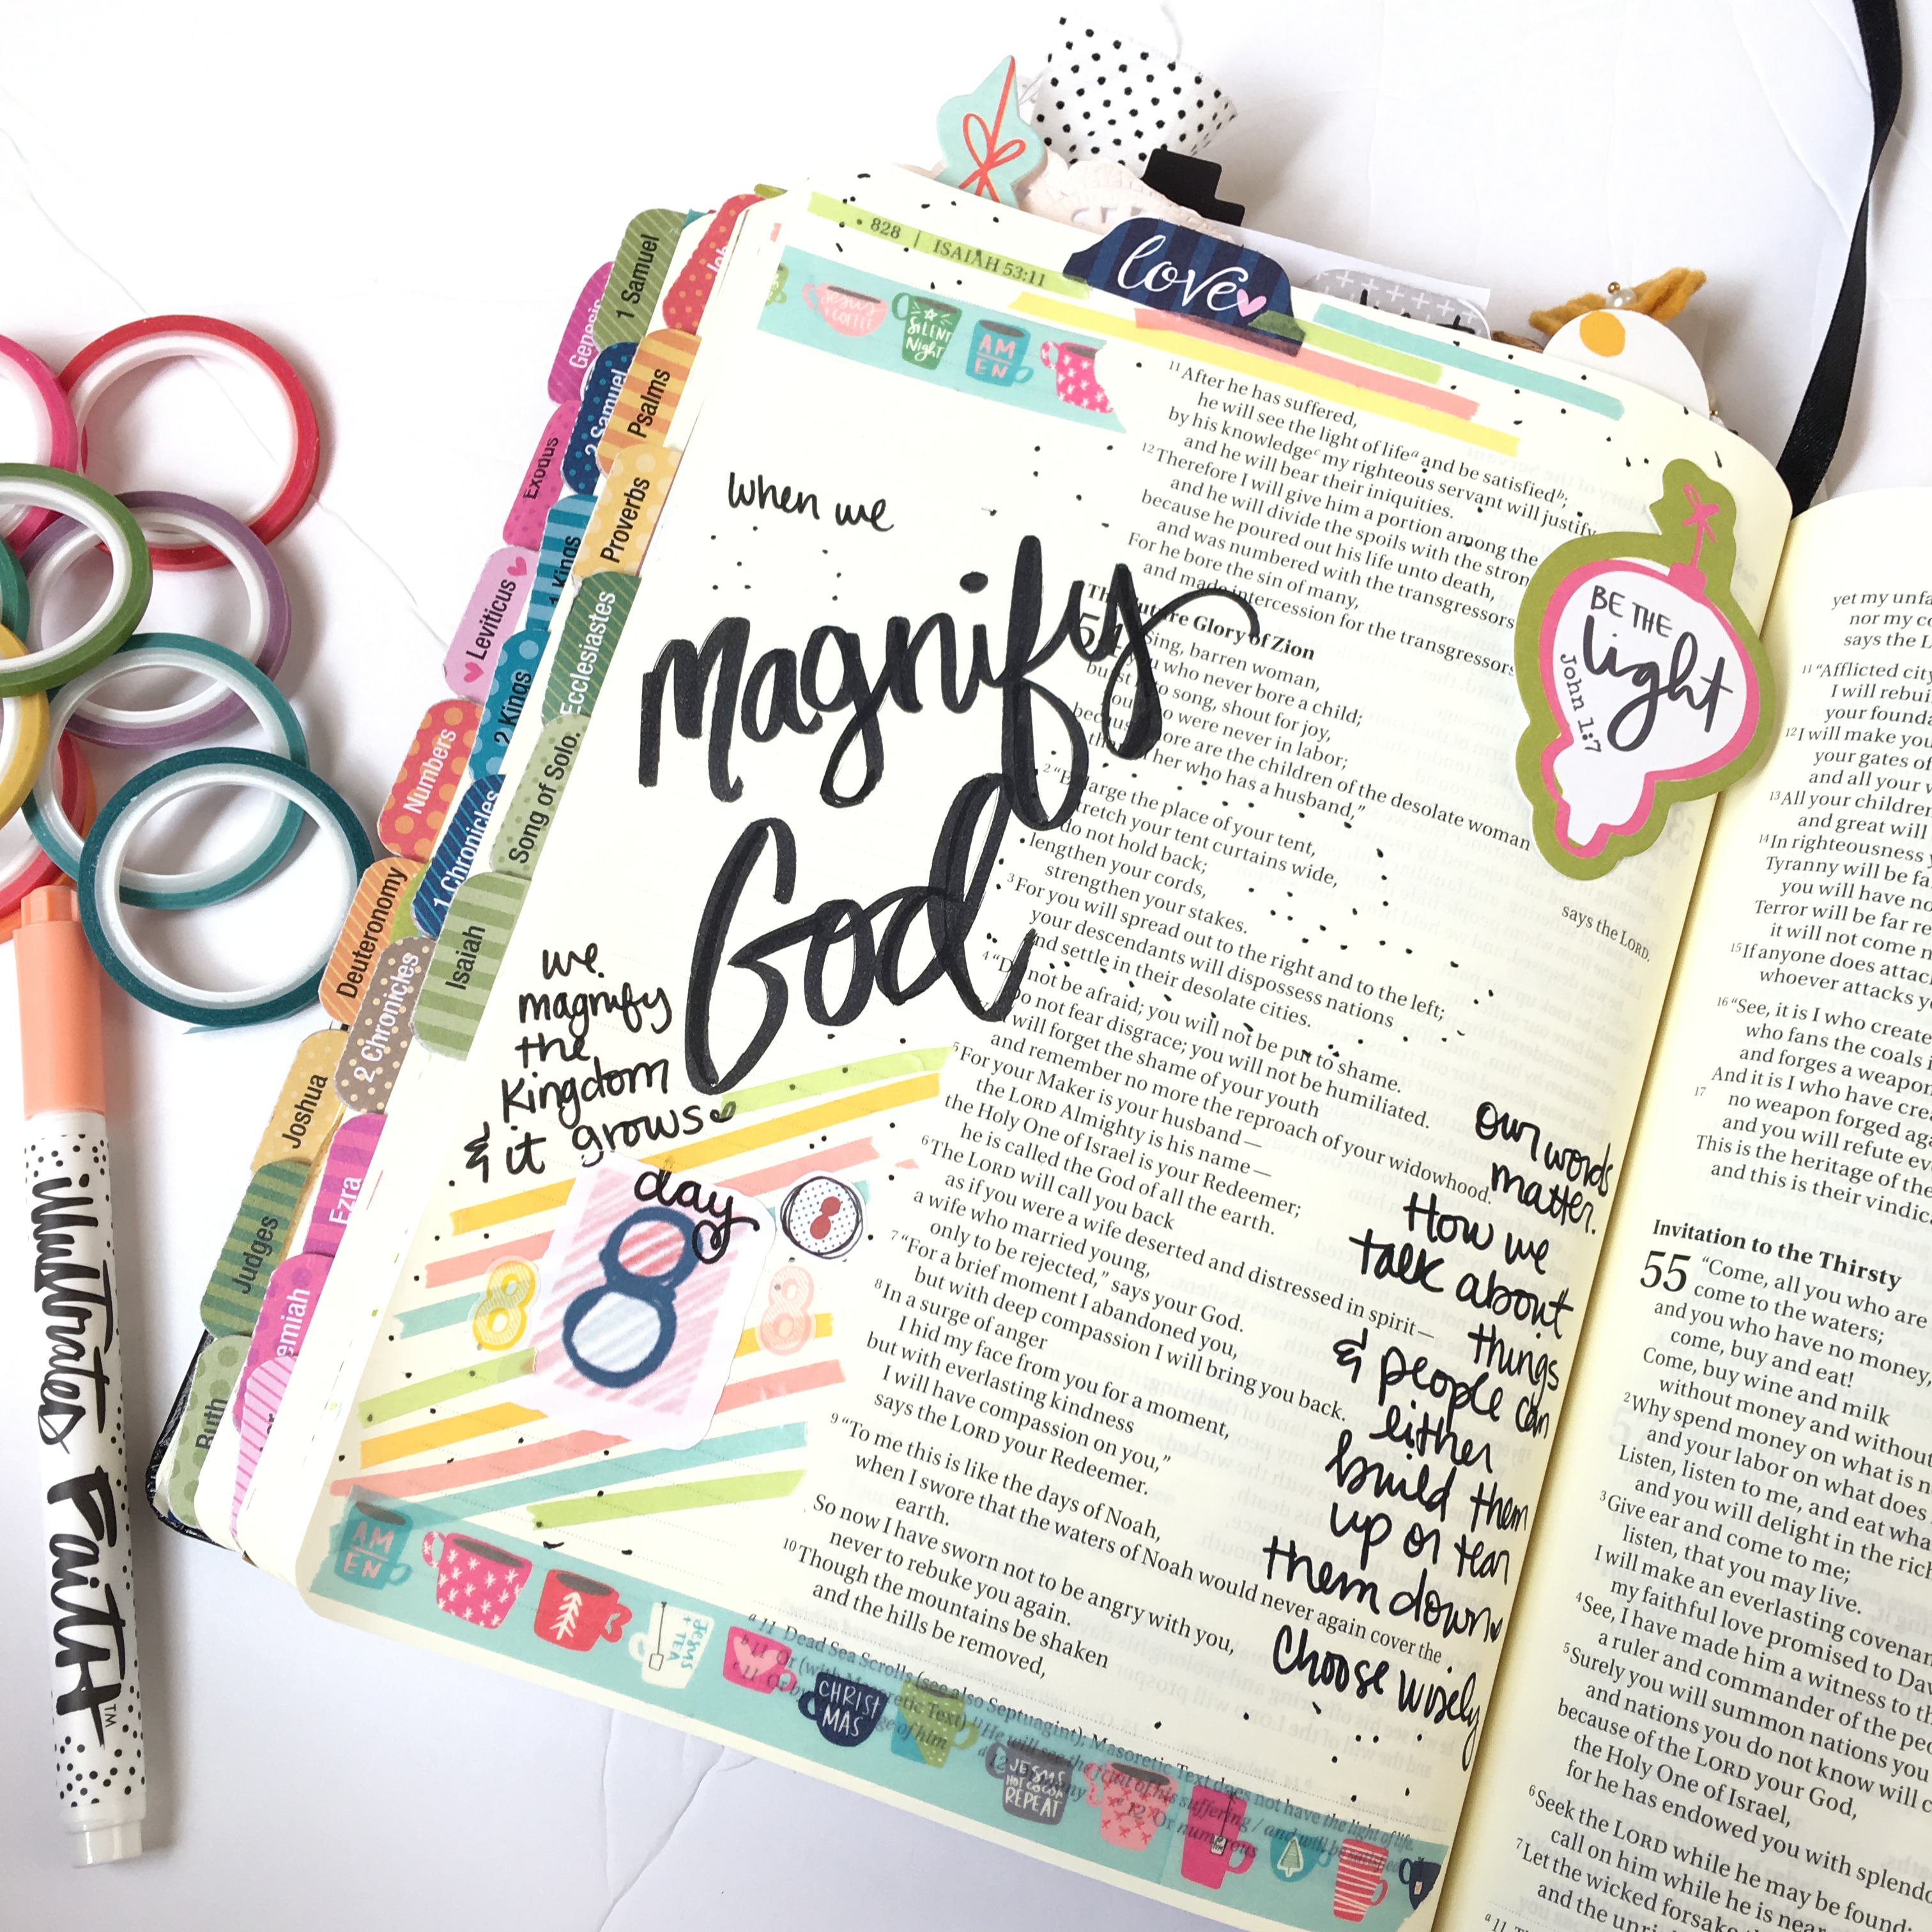 828 | ISAIAH 53:11
love
SILENT
Night
AM
EN
when we
magnify
God
we
magnify
the
Kingdom
& it grows
day
8
8
8
our words
matter.
How we
talk about
things
& people can
either
build them
up or tear
them down
Choose wisely
BE THE
light
John 1:7
11 After he has suffered,
he will see the light of life a and be satisfied b;
by his knowledge c my righteous servant will justify
and he will bear their iniquities.
12 Therefore I will give him a portion among the
and he will divide the spoils with the
because he poured out his life unto death,
and was numbered with the transgressors
For he bore the sin of many,
and made intercession for the transgressors
Glory of Zion
Sing, barren woman,
who never bore a child;
song, shout for joy,
who were never in labor;
more are the children of the desolate woman
her who has a husband,"
2 the place of your tent,
stretch your tent curtains wide,
do not hold back;
lengthen your cords,
strengthen your stakes.
says the LORD.
3 For you will spread out to the right and to the left;
your descendants will dispossess nations
and settle in their desolate cities.
4 not be afraid; you will not be put to shame.
Do not fear disgrace; you will not be humiliated.
will forget the shame of your youth
and remember no more the reproach of your widowhood.
5 For your Maker is your husband—
the LORD Almighty is his name—
the Holy One of Israel is your Redeemer;
he is called the God of all the earth.
6 The LORD will call you back
as if you were a wife deserted and distressed in spirit—
a wife who married young,
only to be rejected," says your God.
7 "For a brief moment I abandoned you,
but with deep compassion I will bring you back.
8 In a surge of anger
I hid my face from you for a moment,
but with everlasting kindness
I will have compassion on you,"
says the LORD your Redeemer.
9 "To me this is like the days of Noah,
when I swore that the waters of Noah would never again cover the
earth.
So now I have sworn not to be angry with you,
never to rebuke you again.
10 Though the mountains be shaken
and the hills be removed,
a 11 Dead Sea Scrolls (see also Septuagint); Masoretic Text does not have the light of life.
AM
EN
JESUS
+ TEA
CHRIST
MAS
JESUS
HOT COCOA
REPEAT
yet my
nor my
says the
11 "Afflicted city
I will
your
12 I will make you
your gates of
and all your
13 All your children
and great will
14 In righteousness
Tyranny will be
you will have
Terror will be far
it will not come
15 If anyone does
whoever attacks
16 "See, it is I who
who fans the coals
and forges a weapon
And it is I who have
17 no weapon forged
and you will refute
This is the heritage of the
and this is their
Invitation to the Thirsty
55 "Come, all you who are
come to the waters;
and you who have no money,
come, buy and eat!
Come, buy wine and milk
without money and without
2 Why spend money on what is
and your labor on what does
Listen, listen to me, and eat
and you will delight in the
3 Give ear and come to me;
listen, that you may live.
I will make an everlasting
my faithful love promised to
4 See, I have made him a witness to
a ruler and commander of the
5 Surely you will summon nations you
and nations you do not know will
because of the LORD your God,
the Holy One of Israel,
for he has endowed you with
6 Seek the LORD while he may be
call on him while he is
7 Let the wicked forsake
and the
Genesis
Exodus
Leviticus
Numbers
Deuteronomy
Joshua
Judges
Ruth
1 Samuel
2 Samuel
Kings
2 Kings
1 Chronicles
2 Chronicles
Ezra
Psalms
Proverbs
Ecclesiastes
Song of Solo.
Isaiah
illustrated Faith™